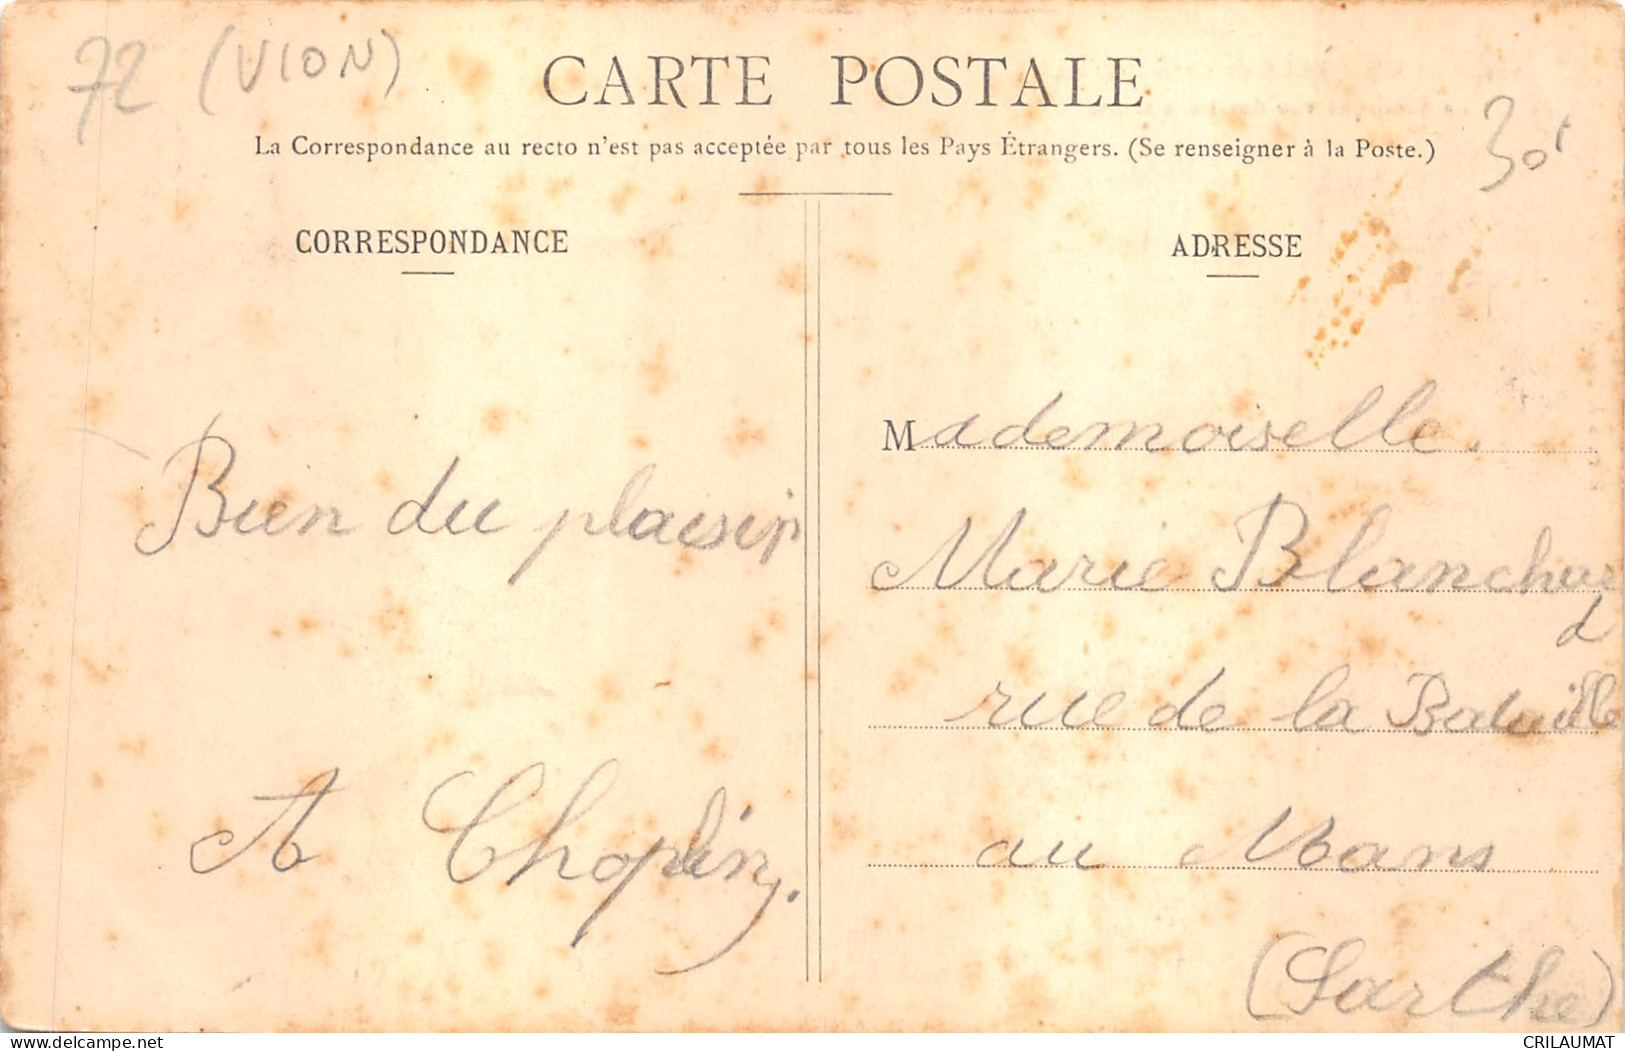 72 (VION)
CARTE POSTALE
30f
La Correspondance au recto n'est pas acceptée par tous les Pays Étrangers. (Se renseigner à la Poste.)
CORRESPONDANCE
Bien du plaisir
A Choplin.
ADRESSE
Mademoiselle.
Marie Blanchar
d
rue de la Bataille
au Mans
(Sarthe)
delcampe.net
CRILAUMAT